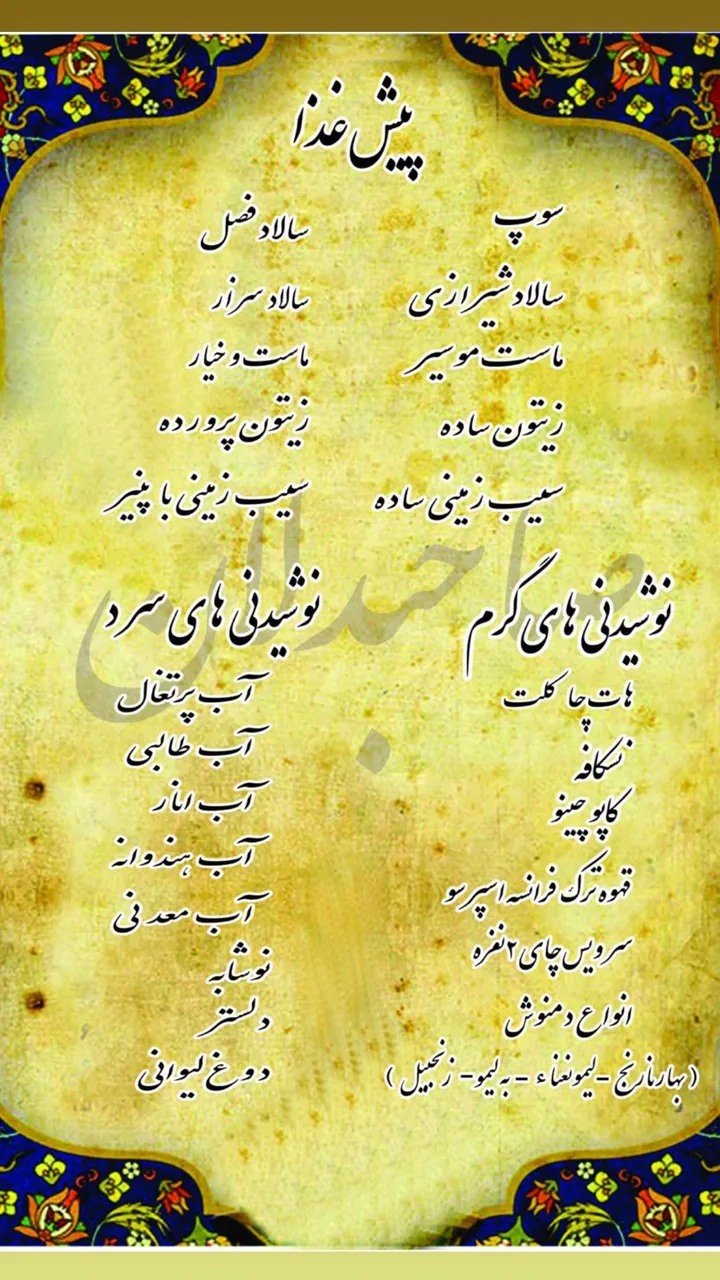 پیش غذا
سوپ
سالاد فصل
سالاد شیرازی
سالاد سزار
ماست موسیر
ماست و خیار
زیتون ساده
زیتون پرورده
سیب زمینی ساده
سیب زمینی با پنیر
صاحبدلان
نوشیدنی های گرم
هات چاکلت
نسکافه
کاپوچینو
قهوه ترک فرانسه اسپرسو
سرویس چای ۲نفره
انواع دمنوش
(بهارنارنج - لیمونعناء - به لیمو - زنجبیل)
نوشیدنی های سرد
آب پرتغال
آب طالبی
آب انار
آب هندوانه
آب معدنی
نوشابه
دلستر
دوغ لیوانی